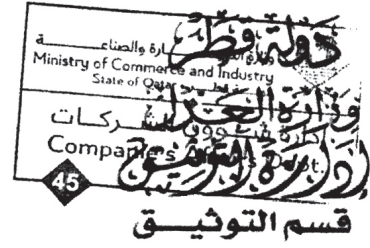 دولة قطر
وزارة التجارة والصناعة
Ministry of Commerce and Industry
State of Qatar
وزارة العدل
إدارة شؤون الشركات
Companies Affairs Dept.
إدارة التوثيق
45
قسم التوثيق